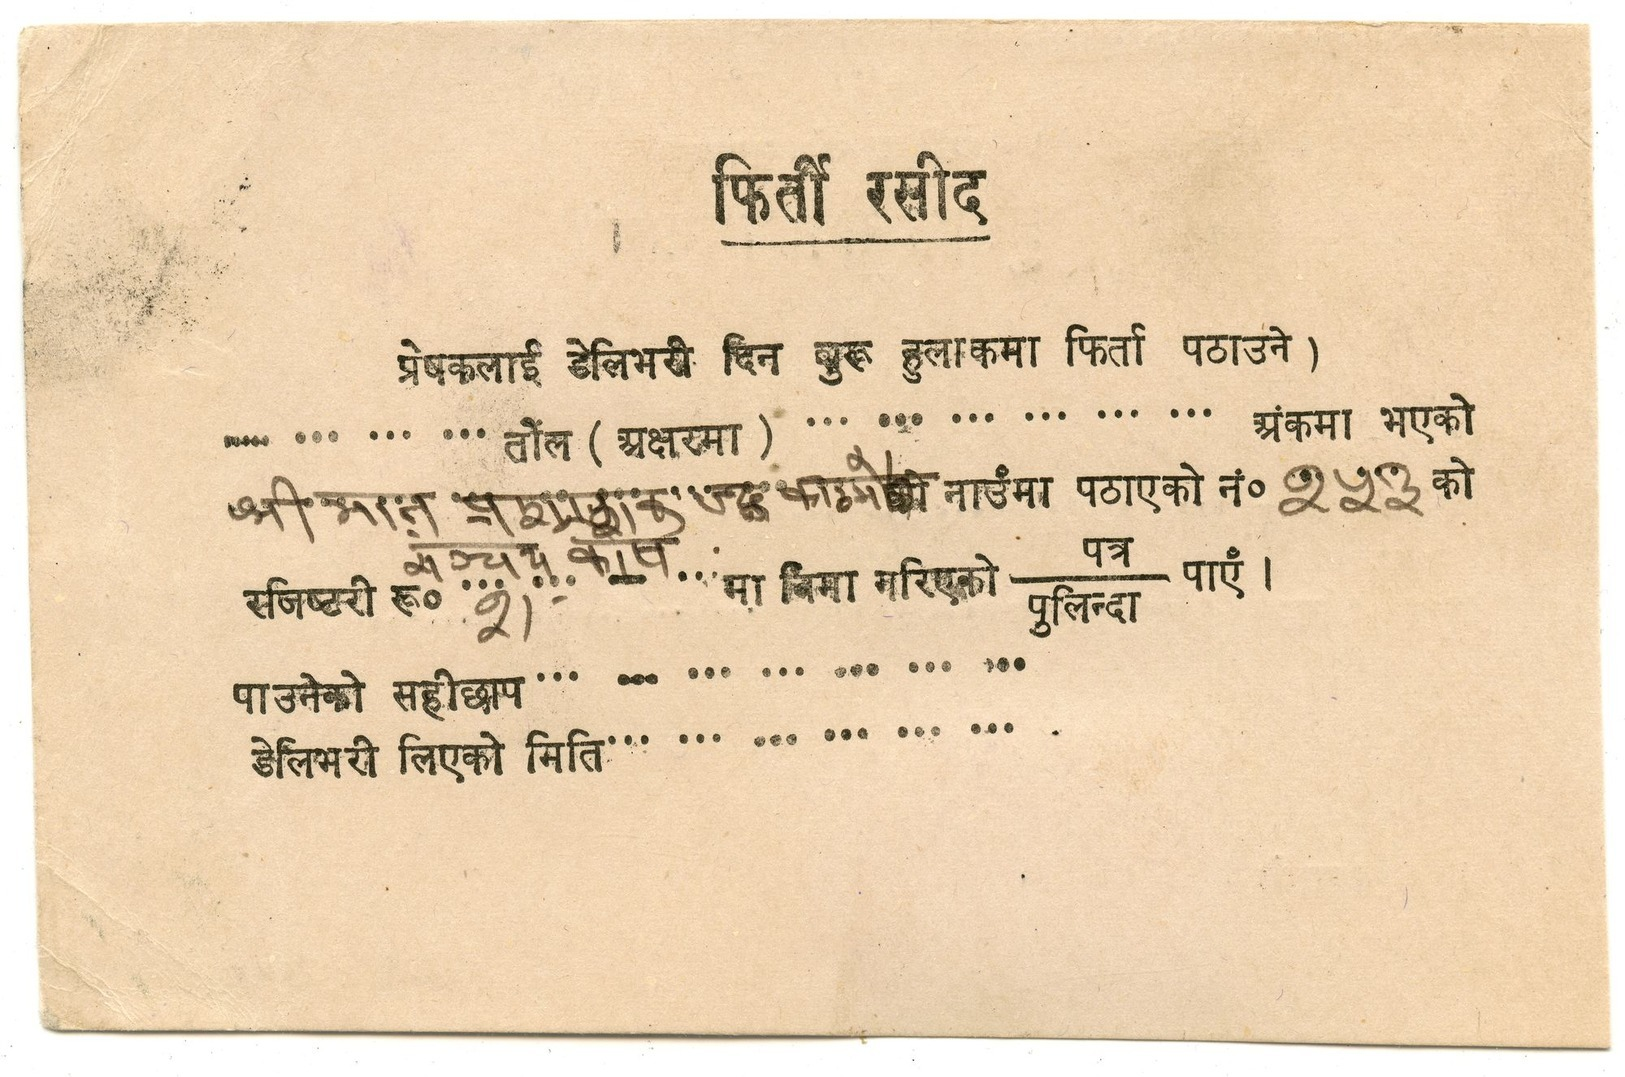 फिर्ती रसीद
प्रेषकलाई डेलिभरी दिन बुरू हुलाकमा फिर्ता पठाउने)
... ... ... ... तौल (अक्षरमा) ... ... ... ... ... ... अंकमा भएको
श्री को नाउँमा पठाएको नं० २५३ को
सञ्चय कोष
रजिष्टरी रू० ... ... ... ... मा बिमा गरिएको पत्र/पुलिन्दा पाएँ ।
२।-
पाउनेको सहीछाप ... ... ... ... ... ... ...
डेलिभरी लिएको मिति ... ... ... ... ... ...